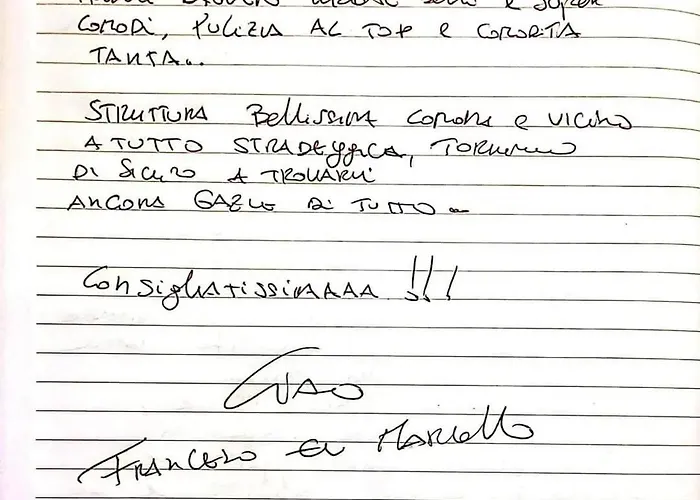 E SUPER
COMODI, PULIZIA AL TOP E COMODITÀ
TANTA..
STRUTTURA BELLISSIMA COMODA E VICINO
A TUTTO STRATEGICA, TORNEREMO
DI SICURO A TROVARVI
ANCORA GRAZIE DI TUTTO..
CONSIGLIATISSIMAAAA !!!
CIAO
FRANCESCO MARCELLO